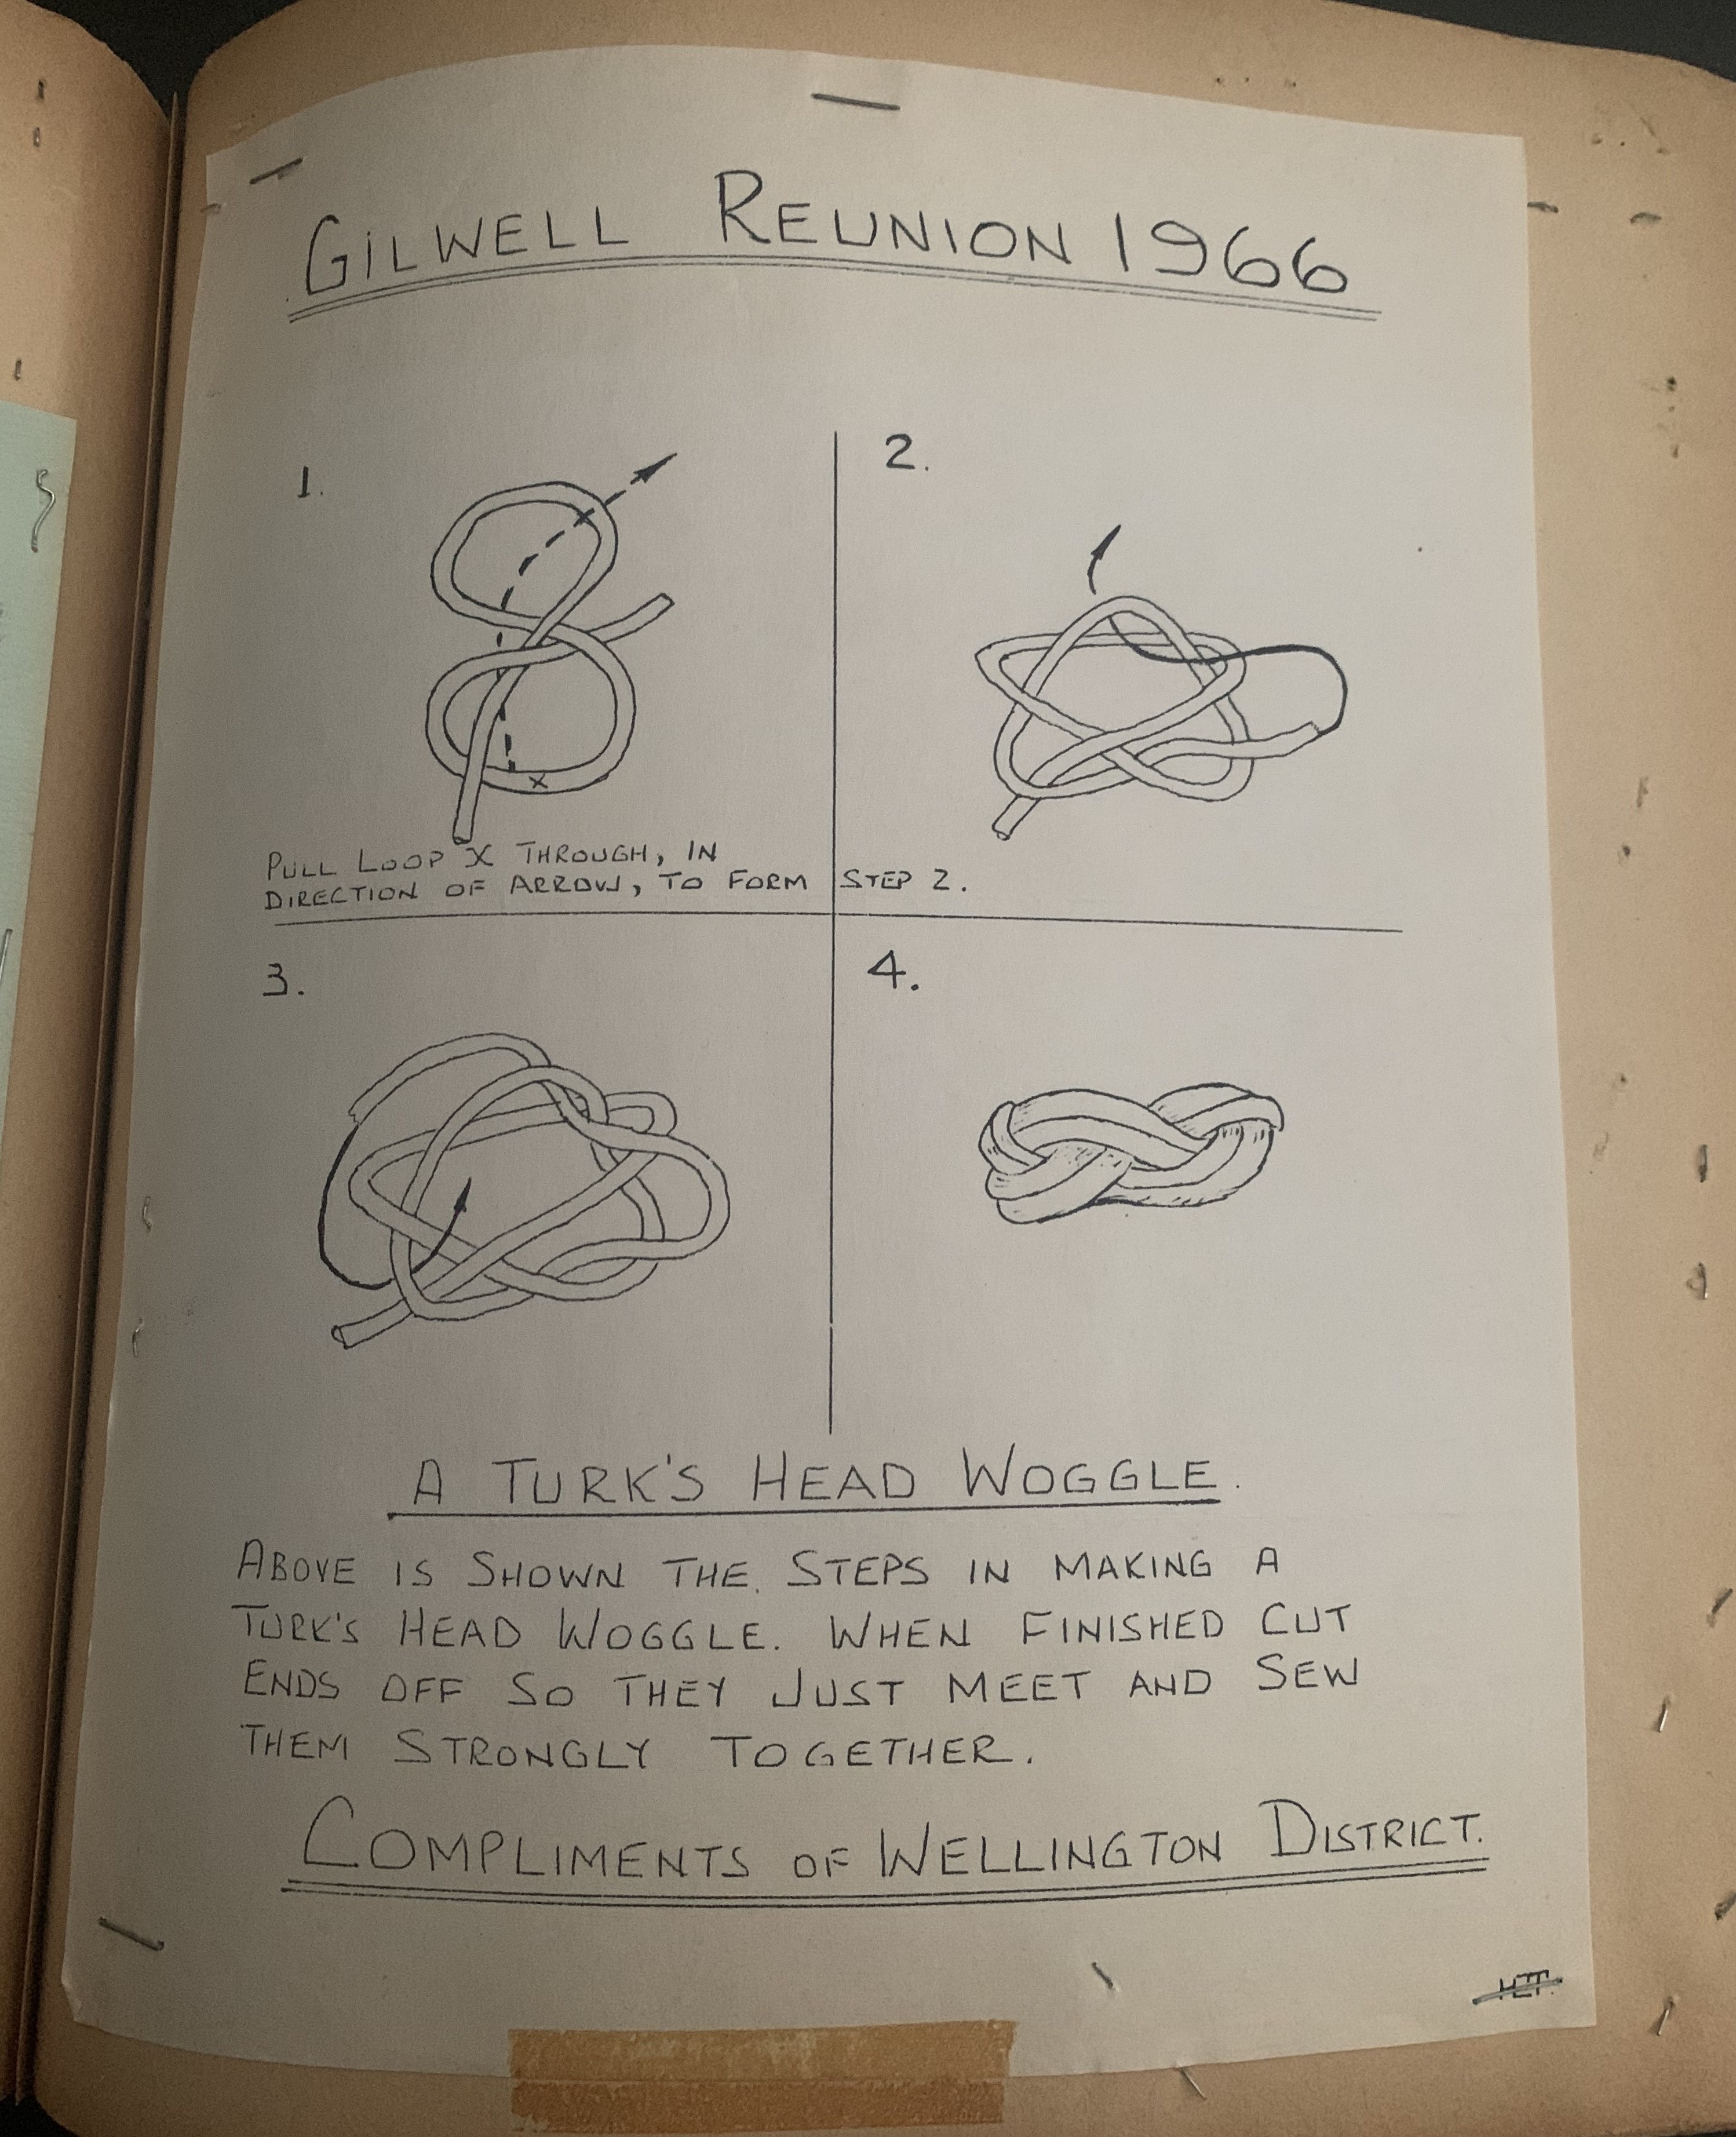 GILWELL REUNION 1966
1.
2.
X
PULL LOOP X THROUGH, IN
DIRECTION OF ARROW, TO FORM STEP 2.
3.
4.
A TURK'S HEAD WOGGLE.
ABOVE IS SHOWN THE STEPS IN MAKING A
TURK'S HEAD WOGGLE. WHEN FINISHED CUT
ENDS OFF SO THEY JUST MEET AND SEW
THEM STRONGLY TOGETHER.
COMPLIMENTS OF WELLINGTON DISTRICT.